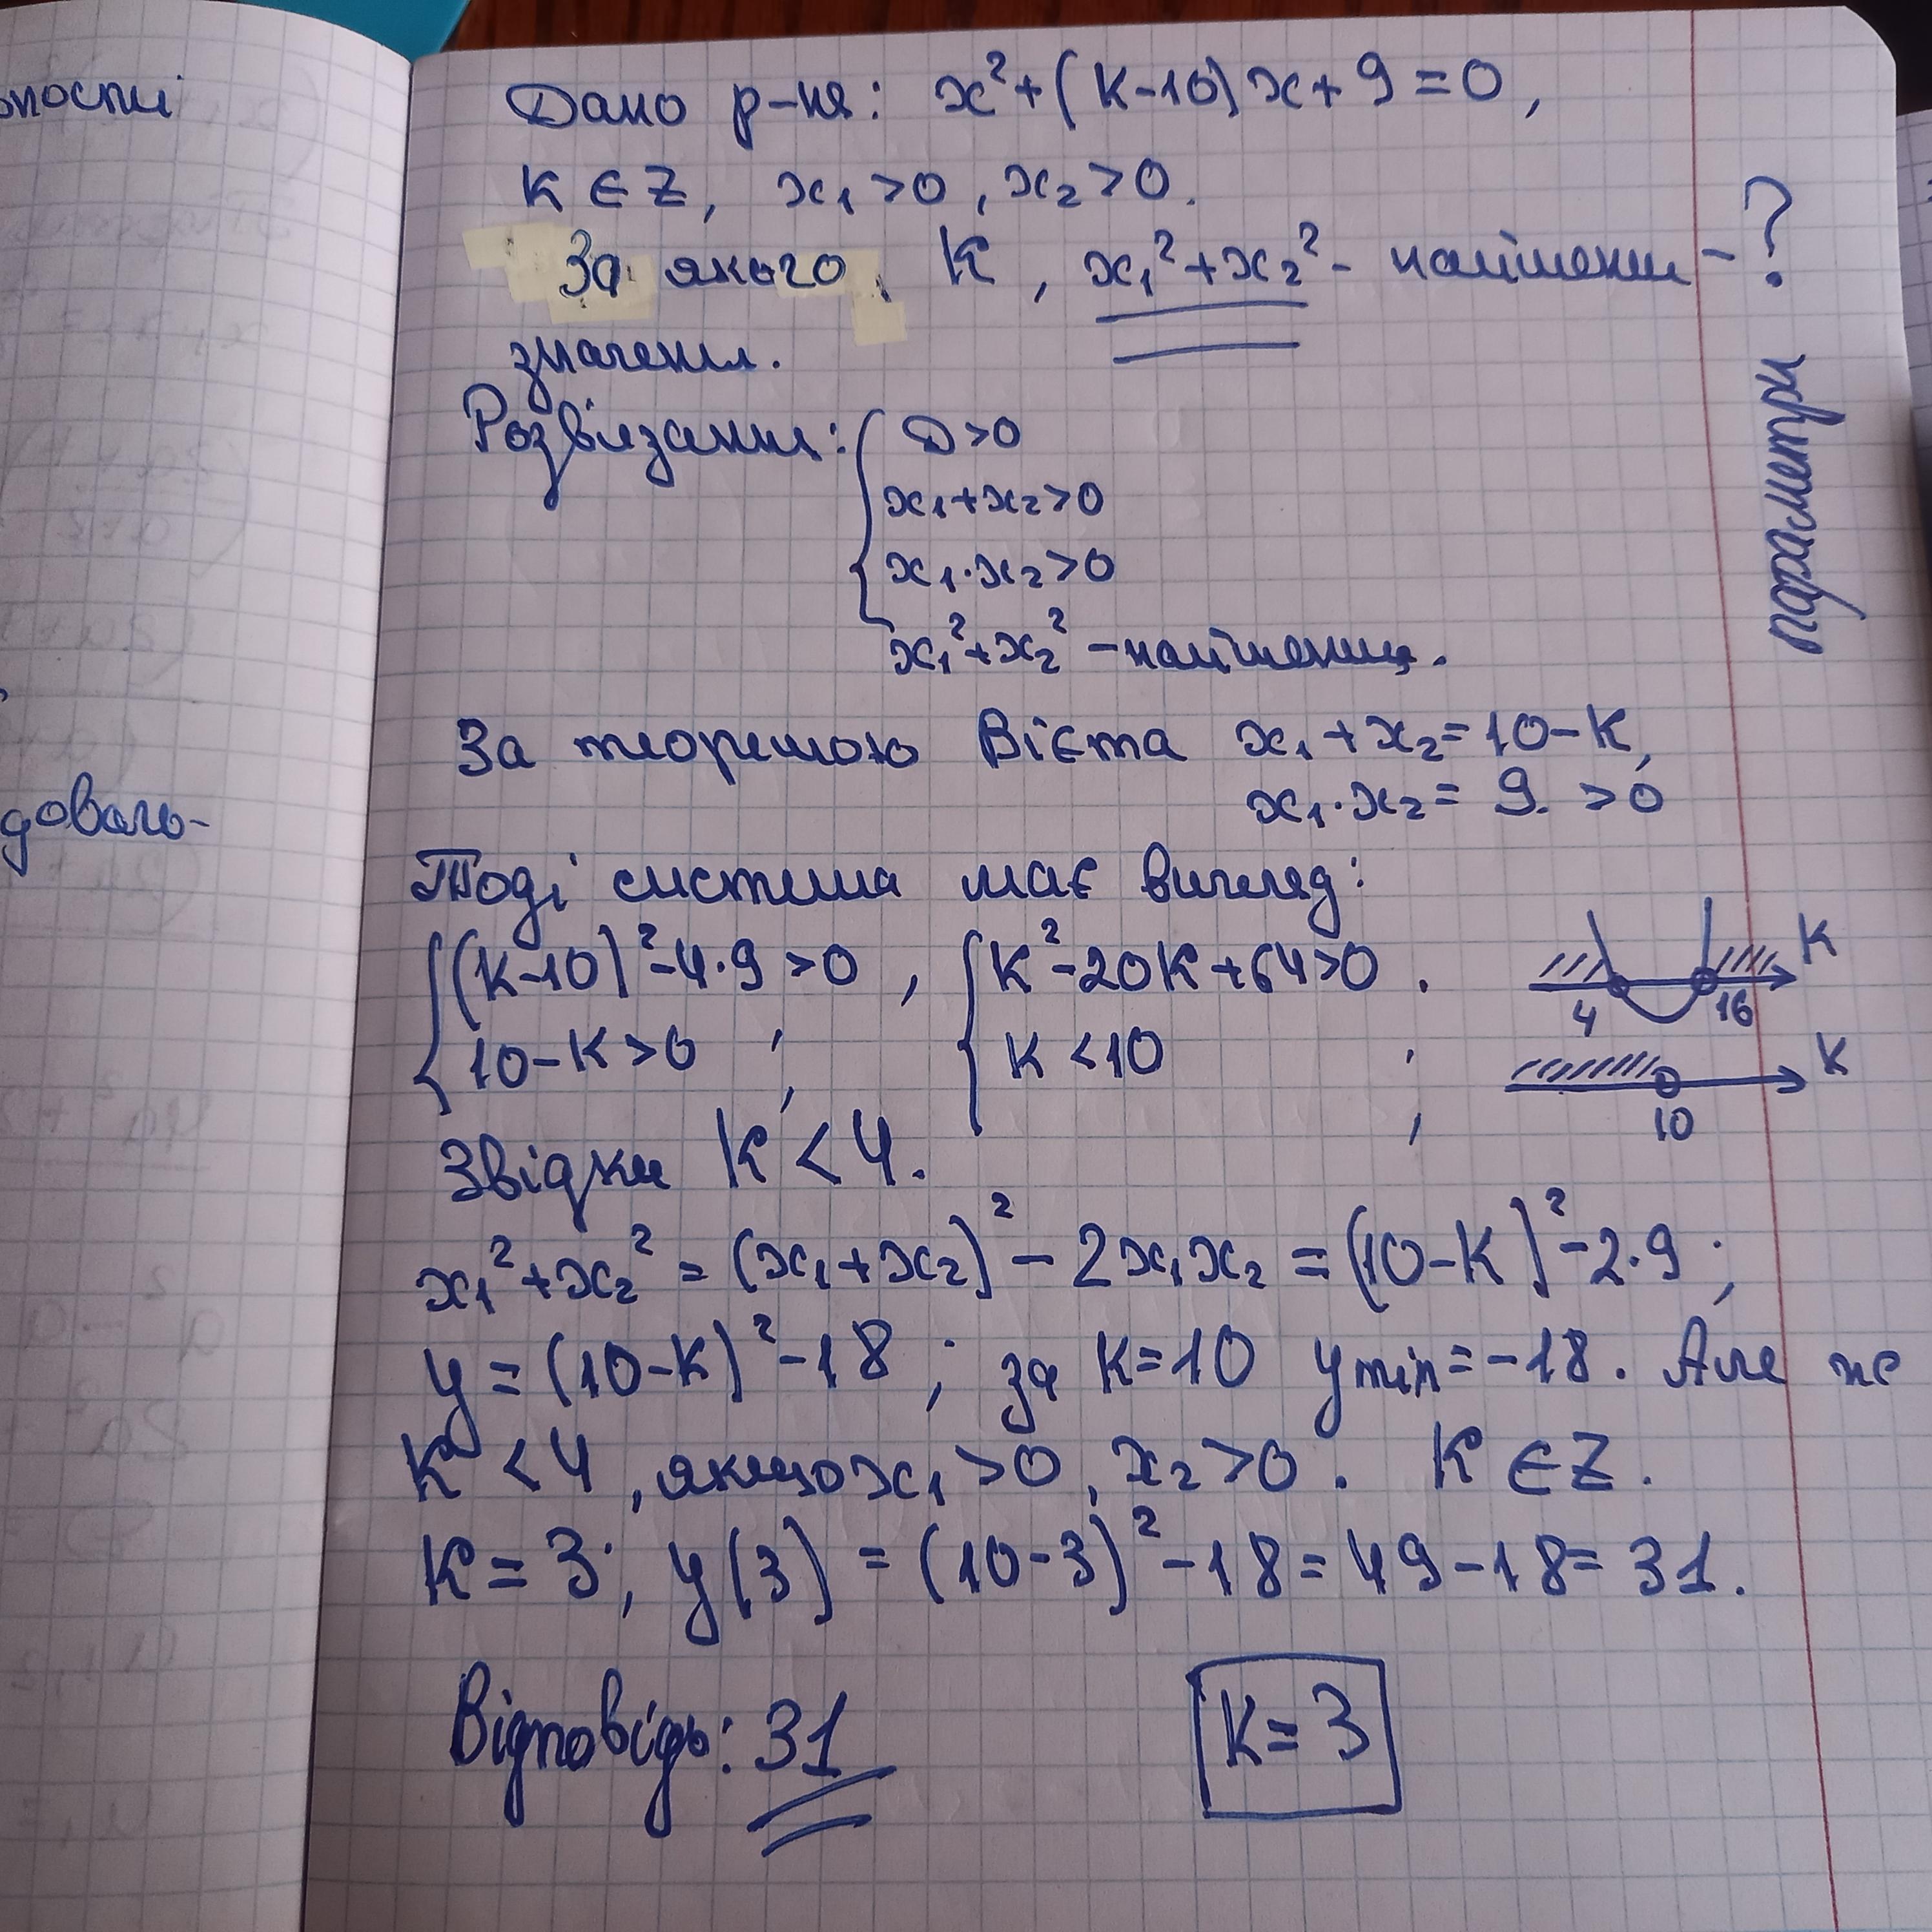 ності
доволь-
Дано р-ня: x²+(k-10)x+9=0,
k∈Z, x₁>0, x₂>0.
За якого k, x₁²+x₂²- найменш - ?
значення.
параметри
Розв'язання: { D>0
x₁+x₂>0
x₁·x₂>0
x₁²+x₂² -найменш.
За теоремою Вієта x₁+x₂=10-k,
x₁·x₂= 9. >0
Тоді система має вигляд:
{ (k-10)²-4·9>0 , { k²-20k+64>0 .
10-k>0 ; k<10 ;
4 16 k
10 k
Звідки k<4.
x₁²+x₂² = (x₁+x₂)² - 2x₁x₂ = (10-k)²-2·9 ;
y = (10-k)²-18 ; за k=10 ymin=-18. Але же
k<4, якщо x₁>0, x₂>0. k∈Z.
k=3; y(3) = (10-3)²-18=49-18= 31.
Відповідь: 31
k=3